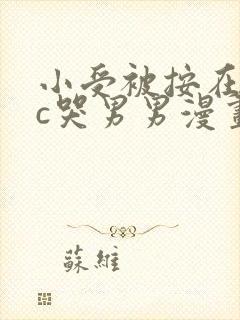 小受被按在
c哭男男漫畫
蘇維